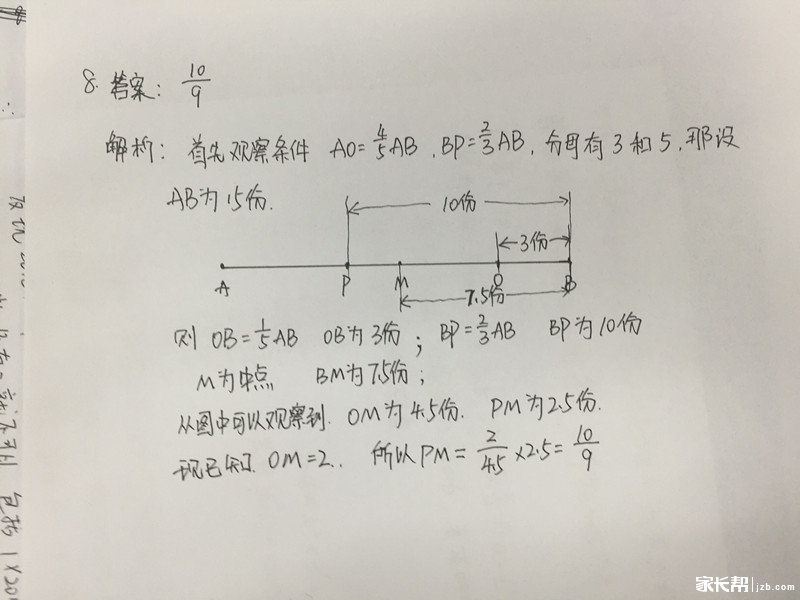 8. 答案: 10/9
解析: 首先观察条件 AO=4/5AB, BP=2/3AB, 分母有3和5, 那设
AB为15份.
10份
3份
A P M O B
7.5份
则 OB=1/5AB OB为3份; BP=2/3AB BP为10份
M为中点 BM为7.5份;
从图中可以观察到. OM为4.5份. PM为2.5份.
现已知. OM=2.. 所以PM=2/4.5×2.5=10/9
家长帮 jzb.com